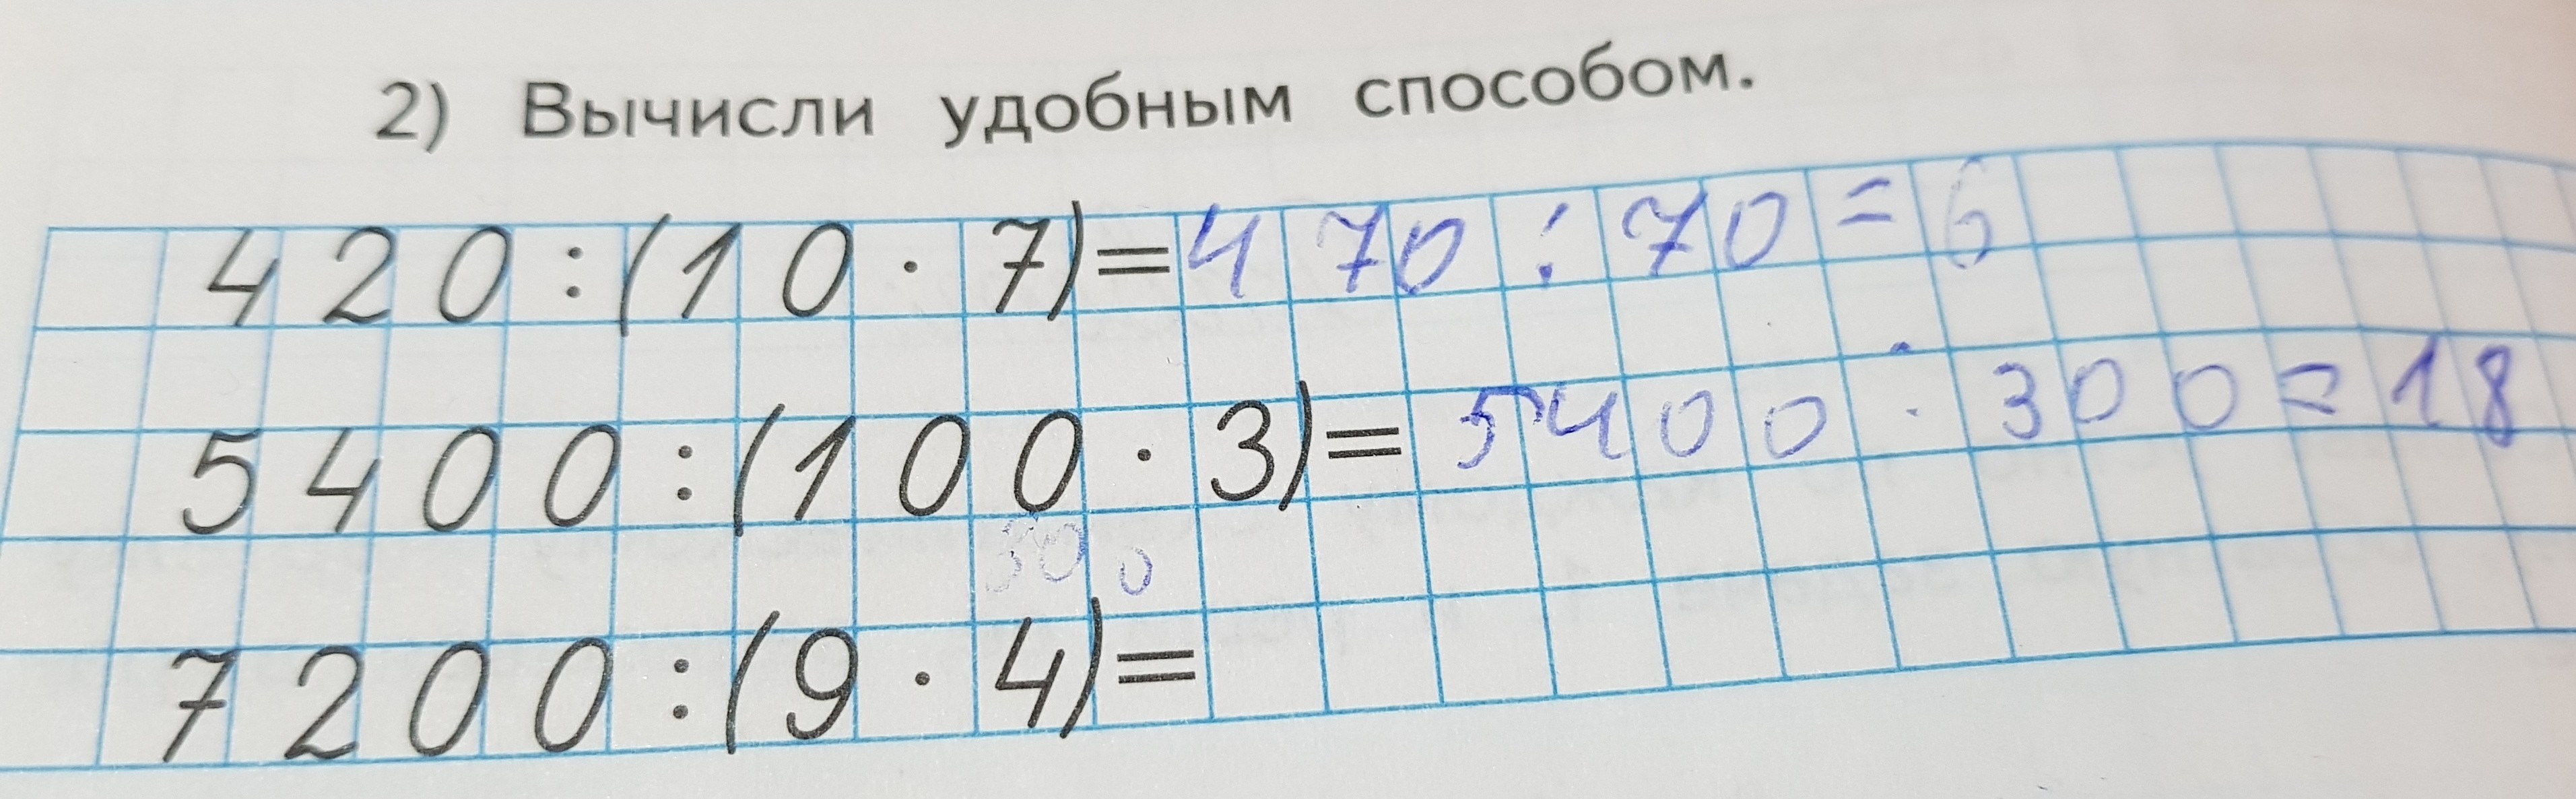 2) Вычисли удобным способом.
420:(10·7)=470:70=6
5400:(100·3)=5400:300=18
300
7200:(9·4)=